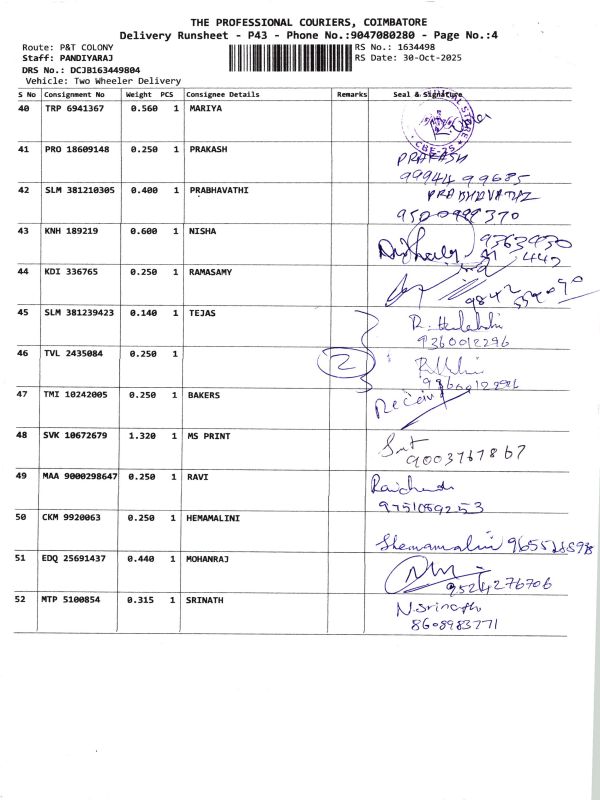 THE PROFESSIONAL COURIERS, COIMBATORE
Delivery Runsheet - P43 - Phone No.:9047080280 - Page No.:4
Route: P&T COLONY
Staff: PANDIYARAJ
DRS No.: DCJB163449804
Vehicle: Two Wheeler Delivery
RS No.: 1634498
RS Date: 30-Oct-2025
S No Consignment No Weight PCS Consignee Details Remarks Seal & Signature
40 TRP 6941367 0.560 1 MARIYA
CBE-25
41 PRO 18609148 0.250 1 PRAKASH PRAKASH
99944 99685
42 SLM 381210305 0.400 1 PRABHAVATHI
43 KNH 189219 0.600 1 NISHA
44 KDI 336765 0.250 1 RAMASAMY
45 SLM 381239423 0.140 1 TEJAS
9360012296
46 TVL 2435084 0.250 1 2
47 TMI 10242005 0.250 1 BAKERS
48 SVK 10672679 1.320 1 MS PRINT
9003767867
49 MAA 9000298647 0.250 1 RAVI
50 CKM 9920063 0.250 1 HEMAMALINI
51 EDQ 25691437 0.440 1 MOHANRAJ
9524276706
52 MTP 5100854 0.315 1 SRINATH N.Srinath
8608983771